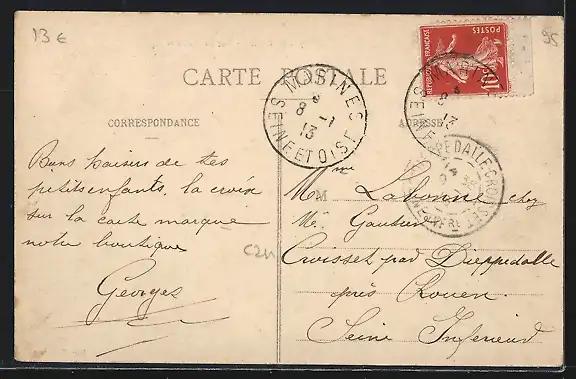 13 €
95
CARTE POSTALE
CORRESPONDANCE
ADRESSE
REPUBLIQUE FRANÇAISE
POSTES
10
8 -1
13
SEINE ET OISE
Bons baisers de tes
petits enfants, la croix
sur la carte marque
notre boutique
Georges
M
Mme Labonne chez
Mr. Gautier
Croisset par Dieppedalle
près Rouen.
Seine Inférieure